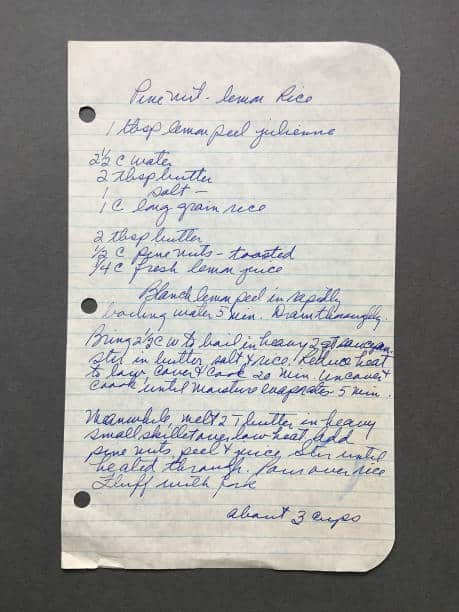 Pine nut - lemon Rice
1 tbsp lemon peel julienne
2½ C water
2 tbsp butter
1 salt -
1 C long grain rice
2 tbsp butter
½ C pine nuts - toasted
¼ C fresh lemon juice
Blanch lemon peel in rapidly
boiling water 5 min. Drain thoroughly.
Bring 2½ C w to boil in heavy 2 qt saucepan
stir in butter, salt & rice. Reduce heat
to low cover & cook 20 min Uncover &
coook until moisture evaporates 5 min.
Meanwhile, melt 2 T butter in heavy
small skillet over low heat, add
pine nuts, peel & juice, stir until
heated through. Pour over rice
Fluff with fork
about 3 cups